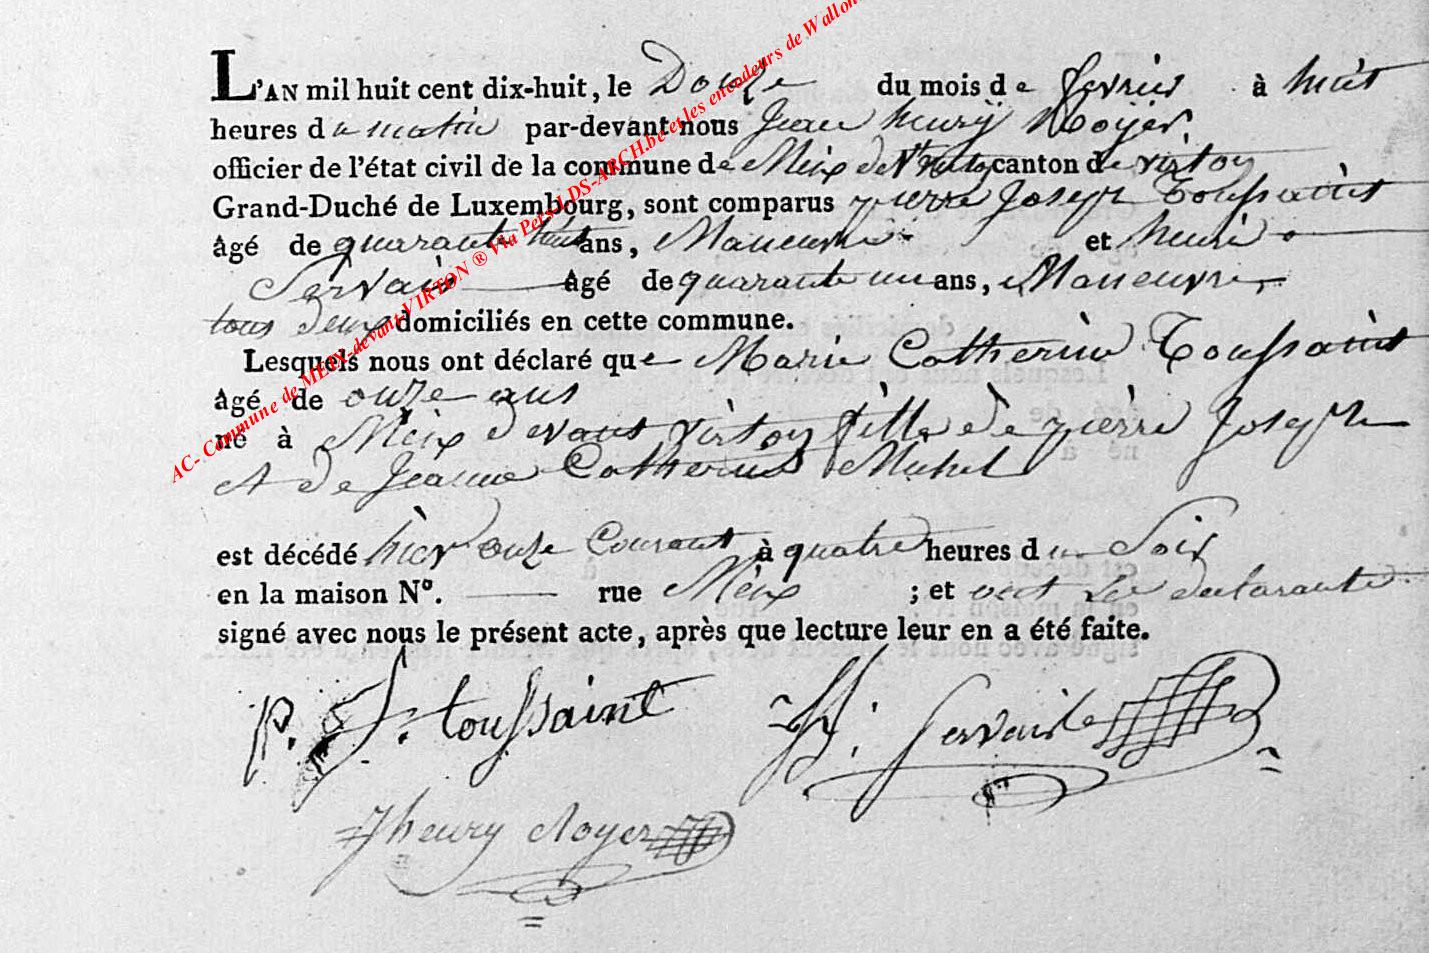 L'AN mil huit cent dix-huit, le Douze du mois de fevrier à huit
heures du matin par-devant nous Jean henry Noyer,
officier de l'état civil de la commune de Meix devt Virton canton de virton
Grand-Duché de Luxembourg, sont comparus pierre Joseph Toussaint
âgé de quarante huit ans, Maneuvre et henri
Servais âgé de quarante un ans, Maneuvre,
tous deux domiciliés en cette commune.
Lesquels nous ont déclaré que Marie Catherine Toussaint
âgé de onze ans
né à Meix devant virton fille de pierre Joseph
et de Jeanne Catherine Michel
est décédé hier onze Courant à quatre heures du Soir
en la maison No. rue Meix ; et ont les declarants
signé avec nous le présent acte, après que lecture leur en a été faite.
P. J. toussaint H. Servais
Jhenry Noyer
AC- Commune de MEIX-devant-VIRTON ® Via Pers-LDS-ARCH.be et les encodeurs de Wallon